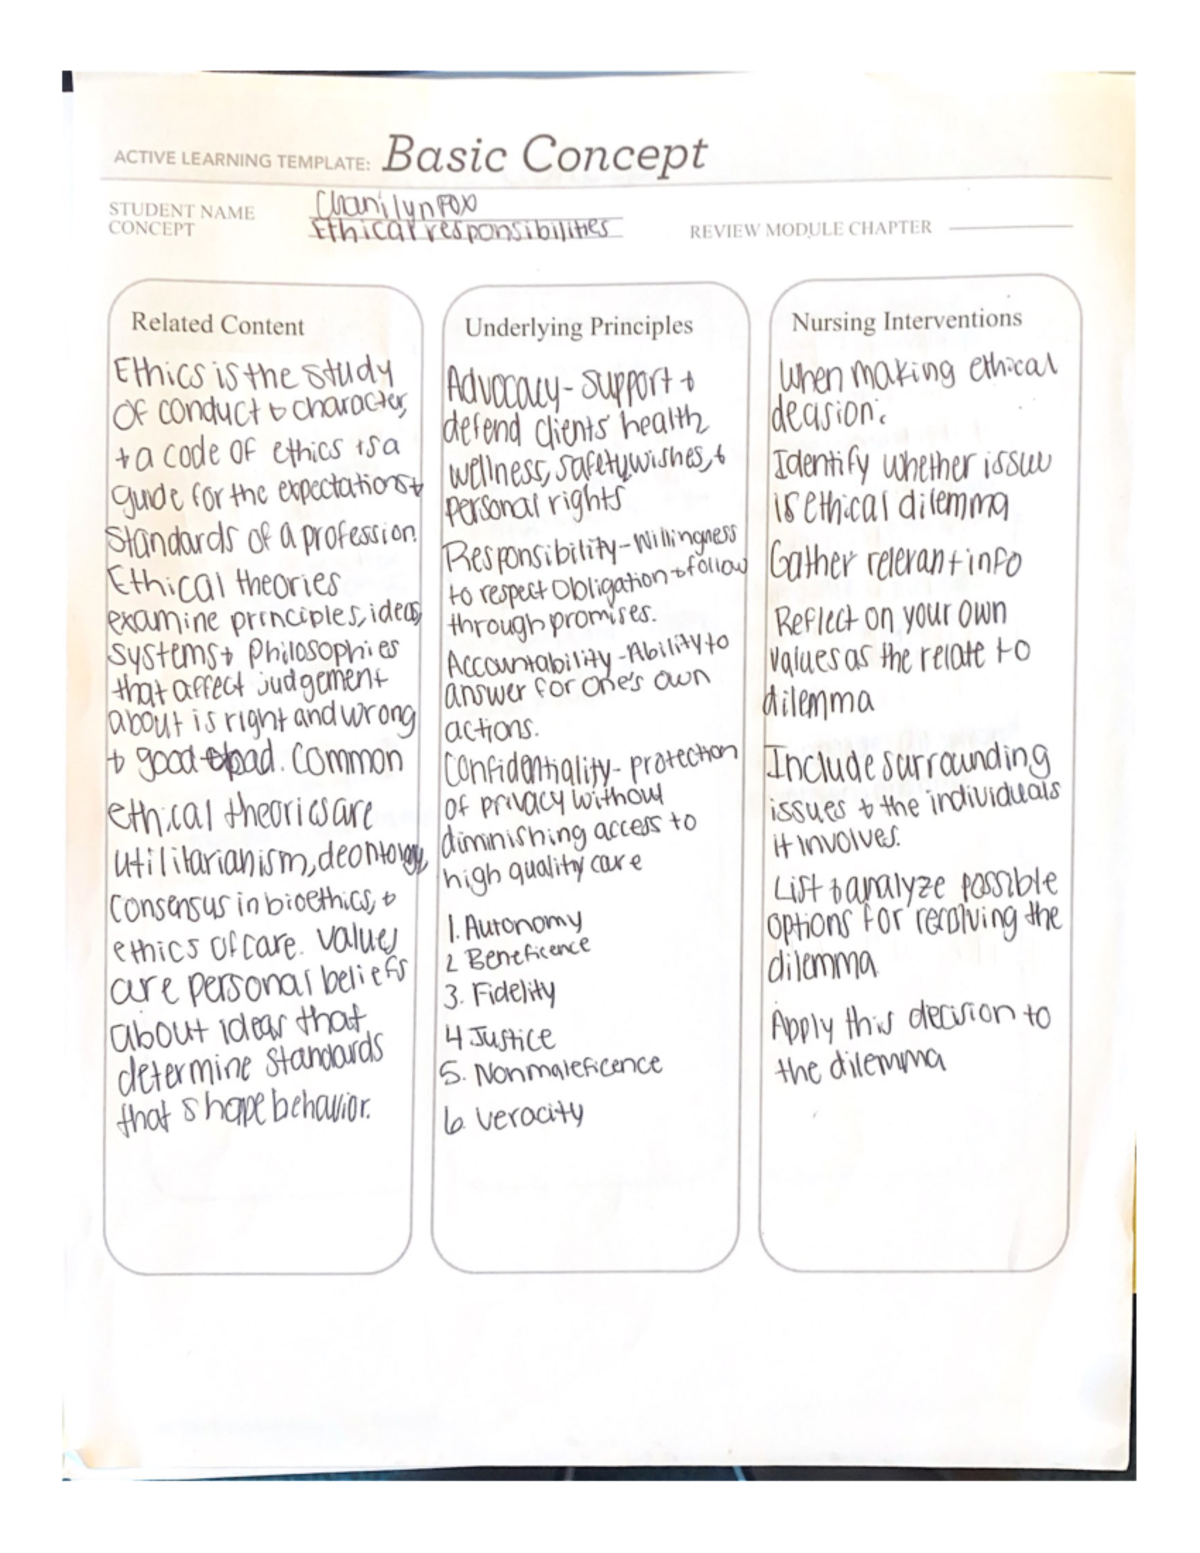 ACTIVE LEARNING TEMPLATE: Basic Concept
STUDENT NAME Chanilyn Fox
CONCEPT Ethical responsibilities
REVIEW MODULE CHAPTER
Related Content
Ethics is the study
of conduct & character,
+ a code of ethics is a
guide for the expectations +
standards of a profession.
Ethical theories
examine principles, ideas,
systems + philosophies
that affect judgement
about is right and wrong
+ good + bad. Common
ethical theories are
utilitarianism, deontology,
consensus in bioethics, +
ethics of care. Values
are personal beliefs
about ideas that
determine standards
that shape behavior.
Underlying Principles
Advocacy - support +
defend clients' health
wellness, safety wishes, +
personal rights
Responsibility - Willingness
to respect obligation + follow
through promises.
Accountability - Ability to
answer for one's own
actions.
Confidentiality - protection
of privacy without
diminishing access to
high quality care
1. Autonomy
2 Beneficence
3. Fidelity
4 Justice
5. Nonmaleficence
6. Veracity
Nursing Interventions
When making ethical
decision:
Identify whether issue
is ethical dilemma
Gather relevant info
Reflect on your own
values as the relate to
dilemma
Include surrounding
issues + the individuals
it involves.
List + analyze possible
options for resolving the
dilemma
Apply this decision to
the dilemma